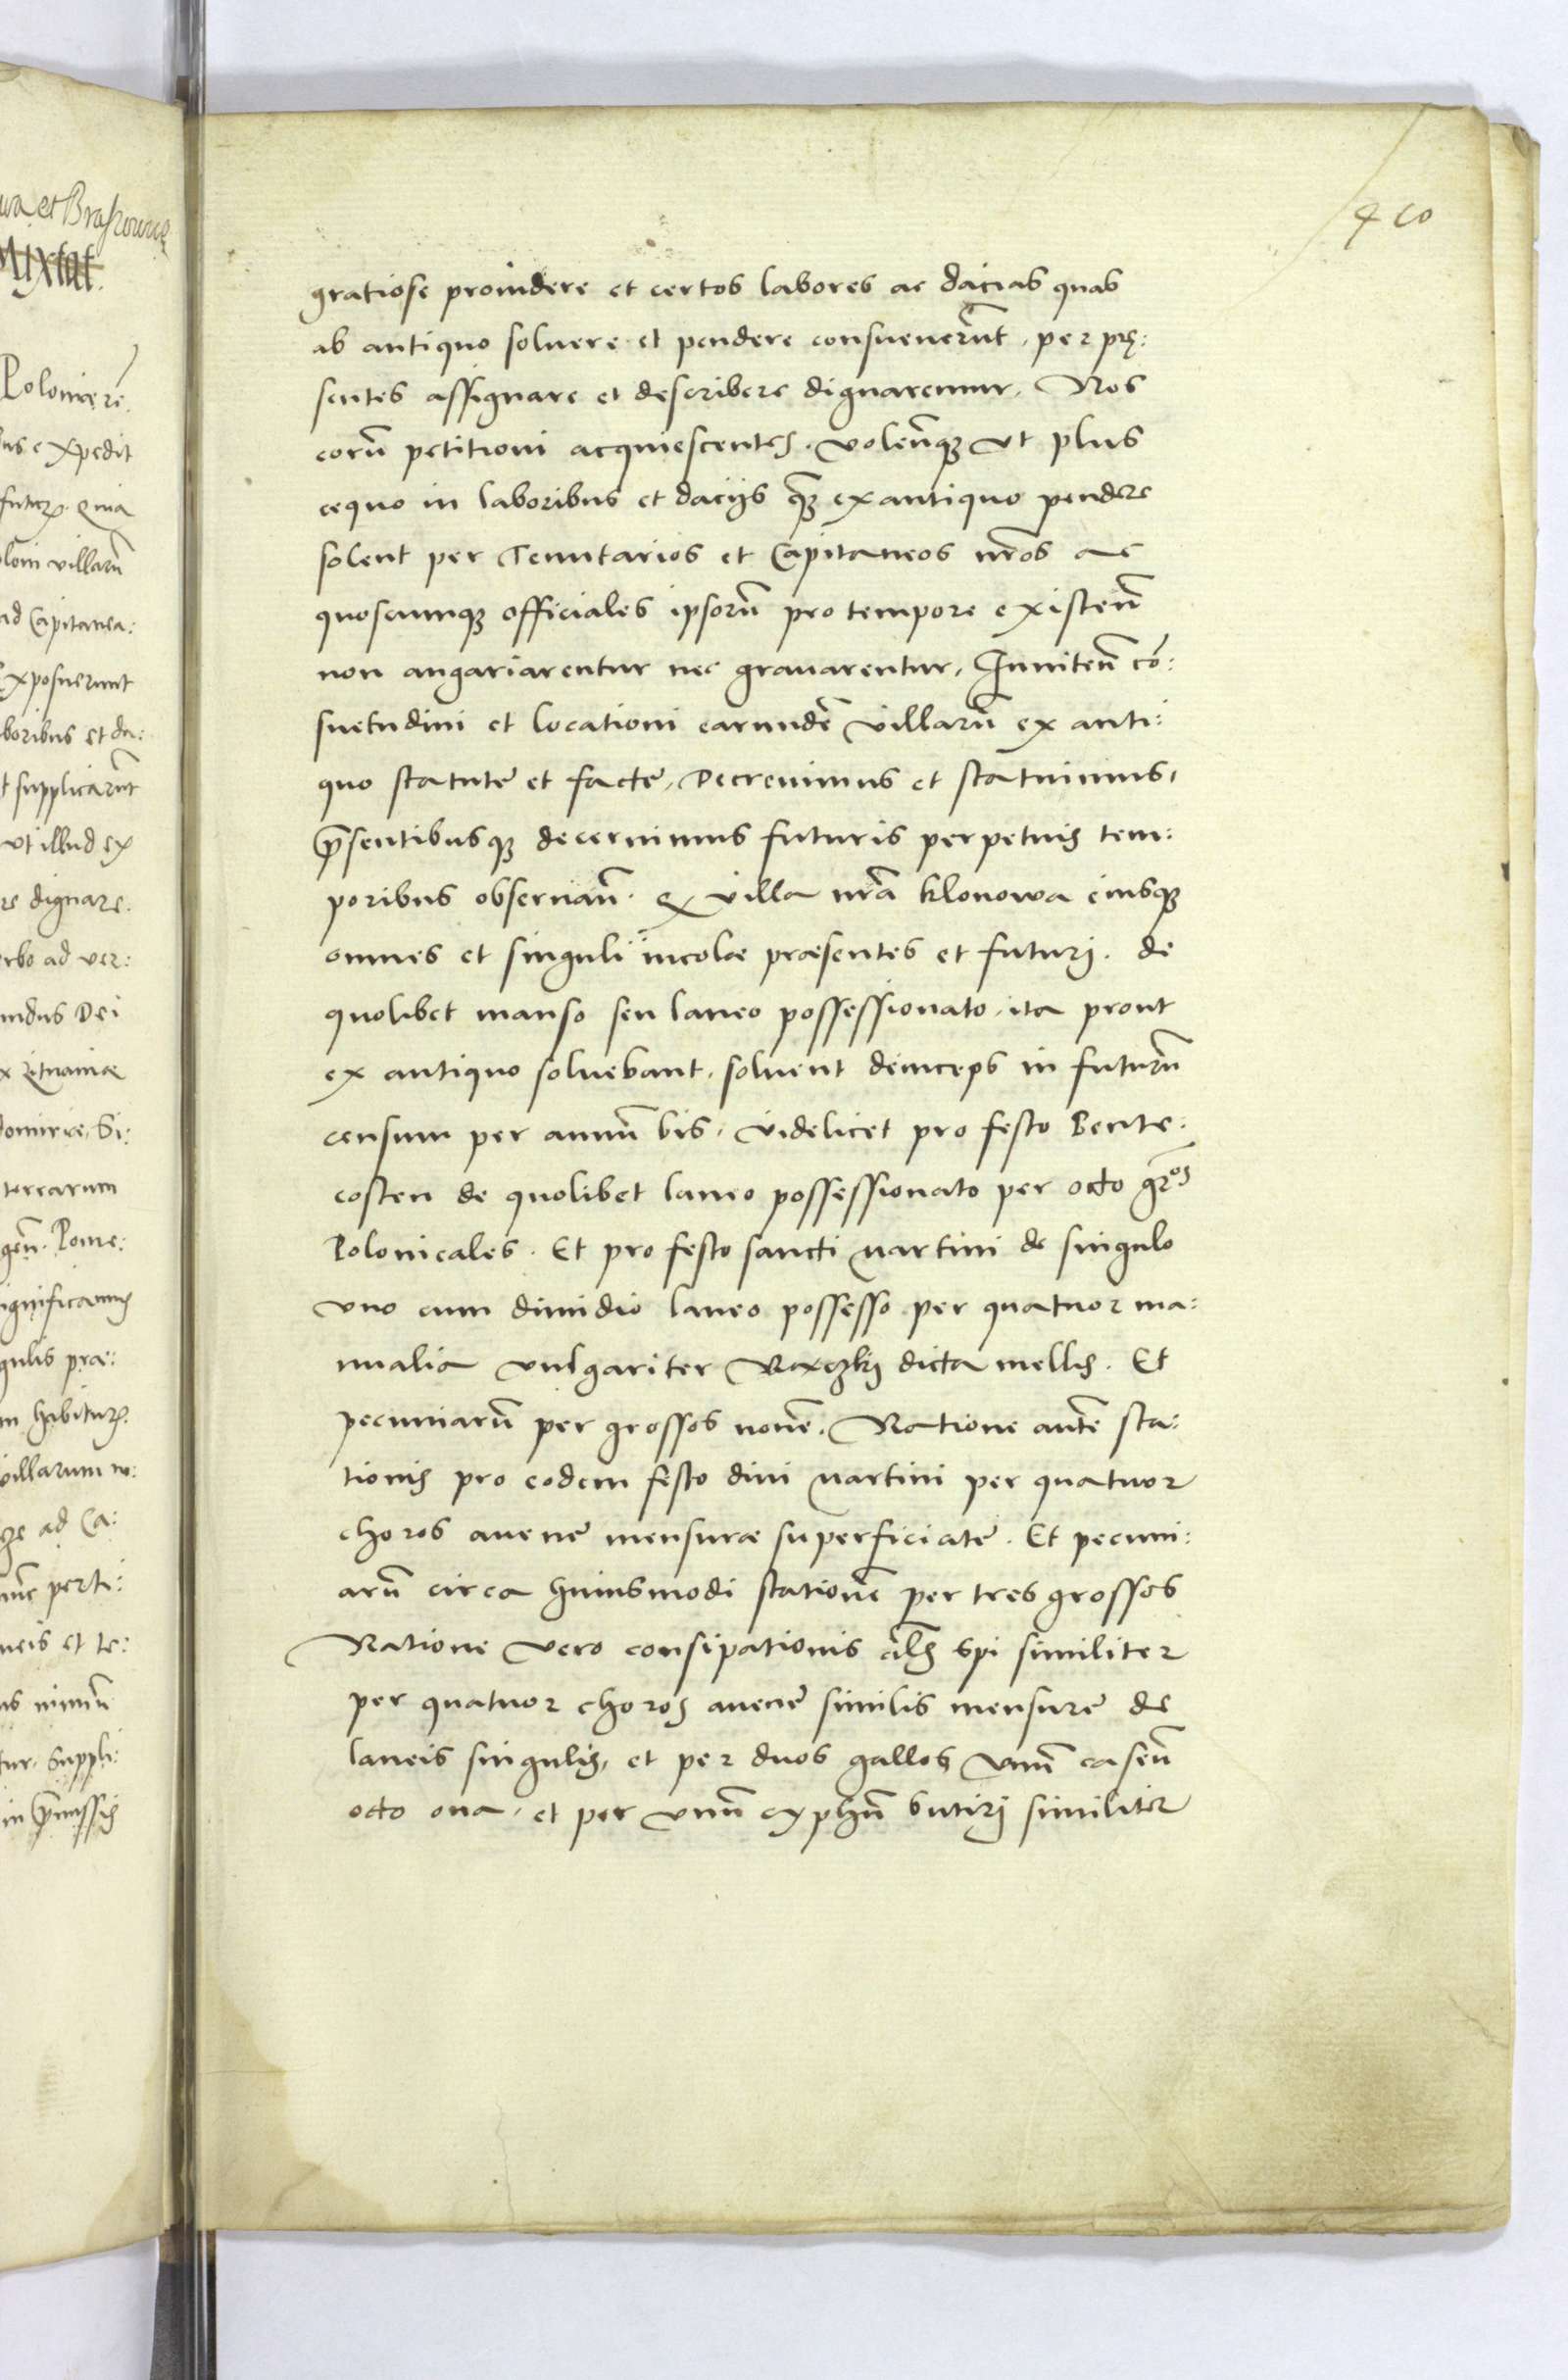 wa et Braszowicze
Polonie re.
us expedit
futur. Quia
loni villarū
ad Capitanea:
exposuerunt
boribus et da:
t supplicarūt
vt illud ex
re dignare.
rbo ad ver:
undus Dei
x Lituaniæ
domiriæ, Si:
terrarum
geñ. Pome:
ignificamus
gulis præ:
m habitur.
villarum n:
ad Ca:
nūc perti:
neis et te:
us nimiū
tur. Suppli:
in p̄missis
410
gratiose prouidere et certos labores ac dacias quas
ab antiquo soluere et pendere consueuerūt, per prę:
sentes assignare et describere dignaremur. Nos
eorū petitioni acquiescentes. volen̄q₃ vt plus
æquo in laboribus et dacijs q̄₃ ex antiquo pendere
solent per Tenutarios et Capitaneos nr̄os ac
quoscunq₃ officiales ipsorū pro tempore existeñ
non angariarentur nec grauarentur, Inniteñ cō:
suetudini et locationi earundē villarū ex anti:
quo statutę et factę, Decreuimus et statuimus,
p̄sentibusq₃ decernimus futuris perpetuis tem:
poribus obseruañ. Q villa nr̄a Klonowa eiusq₃
omnes et singuli incolæ præsentes et futuri. de
quolibet manso seu laneo possessionato, ita prout
ex antiquo soluebant, soluent deinceps in futurū
censum per annū bis, videlicet pro festo Pente:
costen de quolibet laneo possessionato per octo gr̄os
Polonicales. Et pro festo sancti Martini de singulo
vno cum dimidio laneo possesso per quatuor ma:
nualia vulgariter Raczki dicta mellis. Et
pecuniarū per grossos nouē. Ratione autē sta:
tionis pro eodem festo diui Martini per quatuor
choros auenę mensuræ superficiatę. Et pecuni:
arū circa huiusmodi stationē per tres grossos
Ratione vero consipationis spi similiter
per quatuor choros auenę similis mensurę de
laneis singulis, et per duos gallos vnū caseū
octo oua, et per vnū cyphū butiri similiter